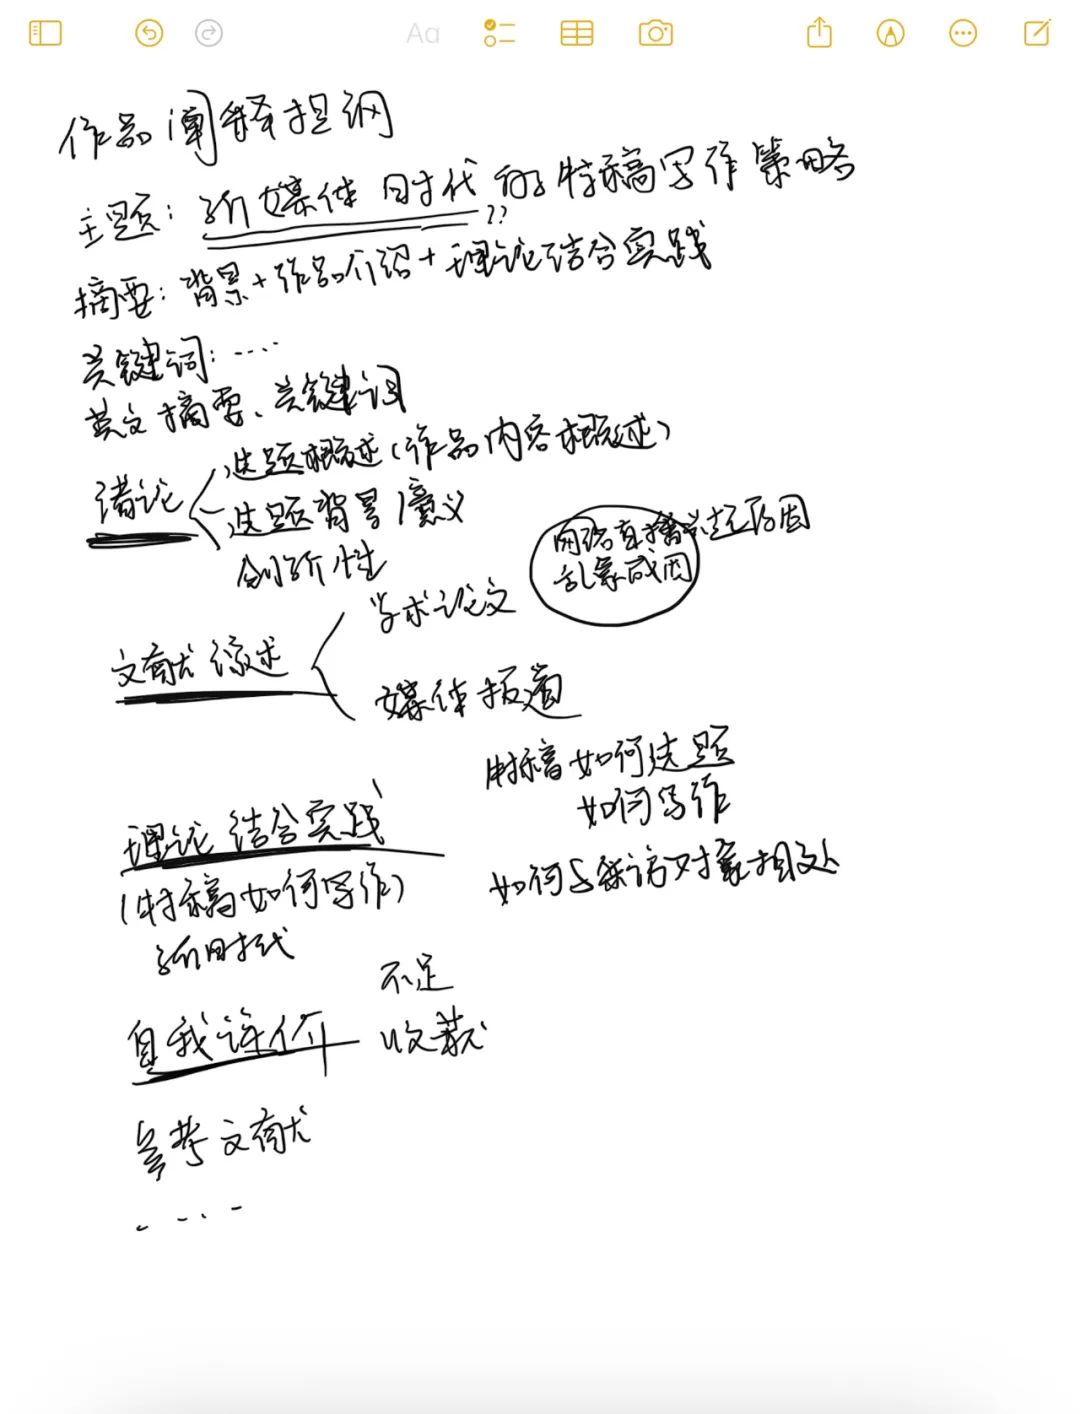 Aa
作品阐释提纲
主题：新媒体时代的特稿写作策略
??
摘要：背景+作品介绍+理论结合实践
关键词：....
英文摘要、关键词
绪论
选题概述（作品内容概述）
选题背景/意义
创新性
网络直播兴起原因
乱象成因
文献综述
学术论文
媒体报道
特稿如何选题
如何写作
如何与采访对象相处
理论结合实践
（特稿如何写作）
新时代
自我评价
不足
收获
参考文献
....